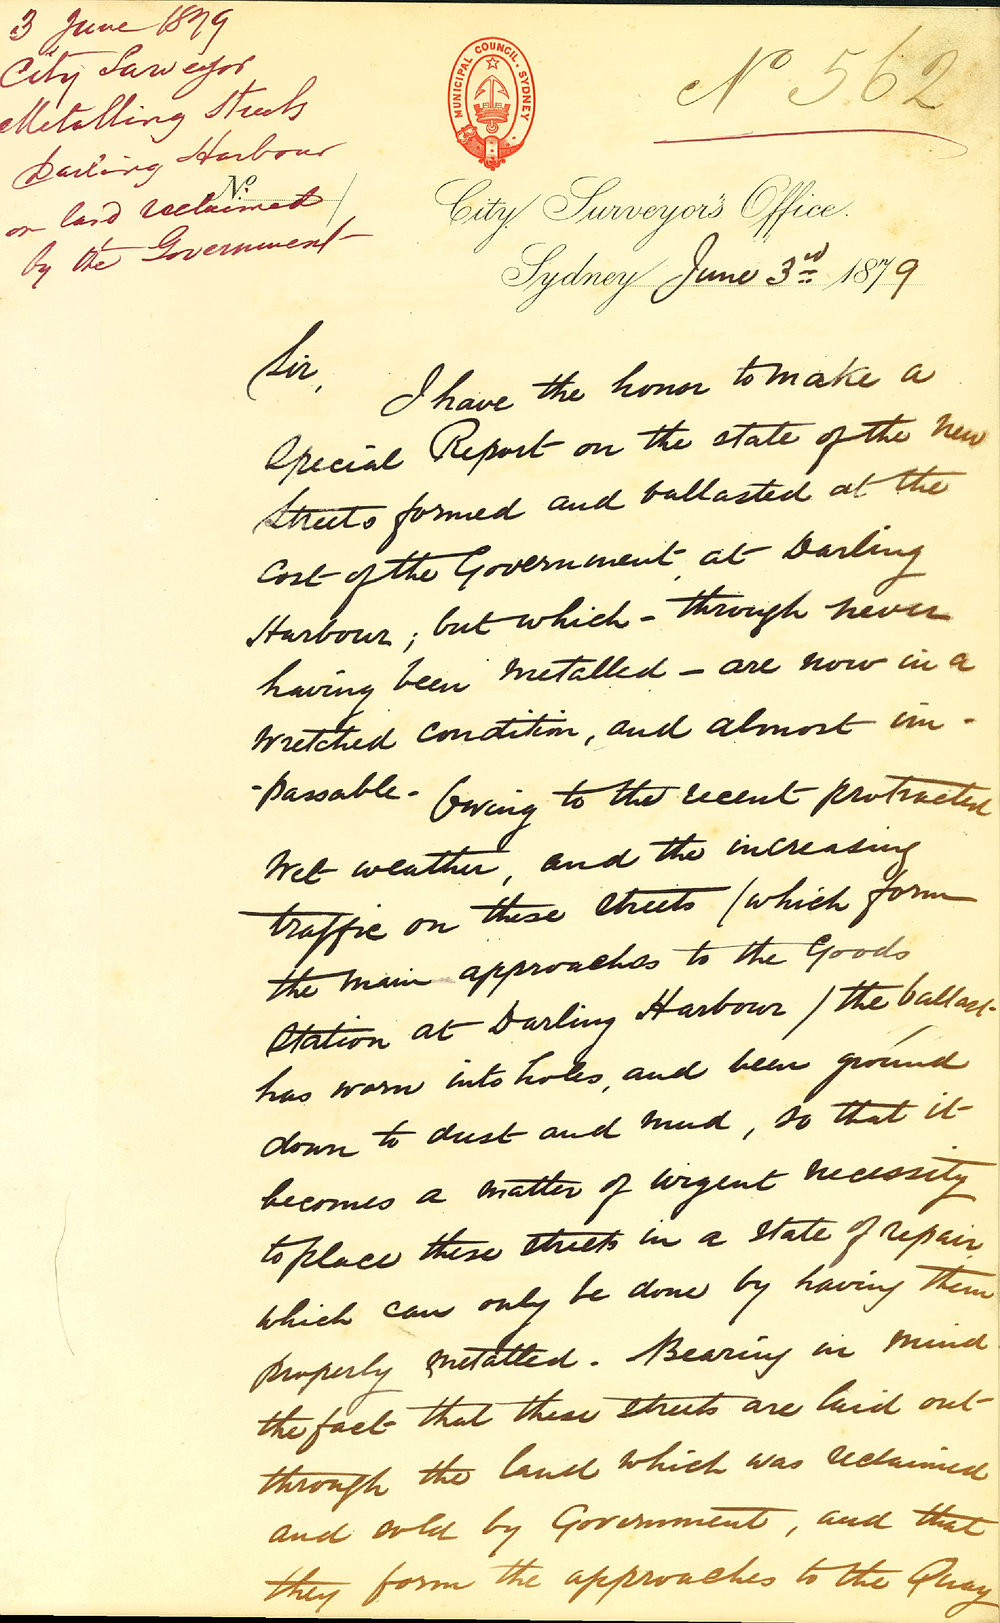 3 June 1879
City Surveyor
Metalling Streets
Darling Harbour
on land reclaimed
by the Government
No.
MUNICIPAL COUNCIL. SYDNEY
No 562
City Surveyor's Office.
Sydney June 3rd 1879
Sir,
I have the honor to make a
Special Report on the state of the new
Streets formed and ballasted at the
Cost of the Government, at Darling
Harbour; but which - through never
having been metalled - are now in a
wretched condition, and almost im-
-passable. Owing to the recent protracted
wet weather, and the increasing
traffic on these streets (which form
the main approaches to the Goods
Station at Darling Harbour) the ballast
has worn into holes, and been ground
down to dust and mud, so that it
becomes a matter of urgent necessity
to place these streets in a state of repair
which can only be done by having them
properly metalled. Bearing in mind
the fact that these streets are laid out
through the land which was reclaimed
and sold by Government, and that
they form the approaches to the Quay